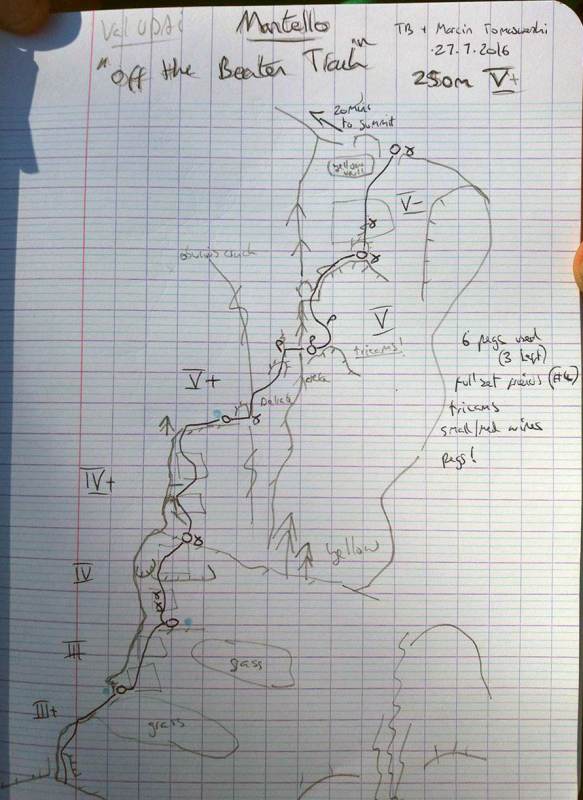 Val UDAI
Mantello
TB + Marcin Tomaszewski
27.7.2016
"Off the Beaten Track"
250m V+
20mins
to summit
yellow
V-
obvious crack
V
tricams!
6 pegs used
(3 left)
full set friends (#4)
tricams
small/med wires
pegs!
V+
Delicate
IV+
yellow
IV
III
gass
III+
grass